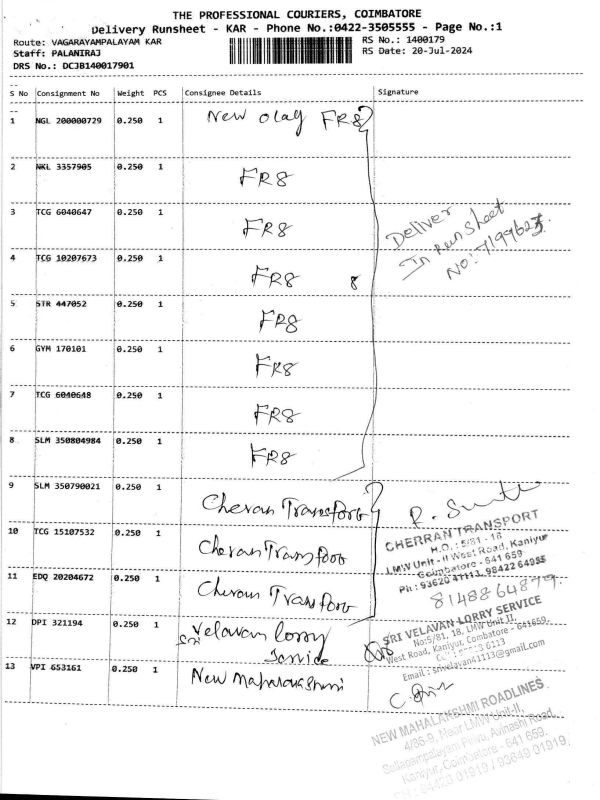 THE PROFESSIONAL COURIERS, COIMBATORE
Delivery Runsheet - KAR - Phone No.:0422-3505555 - Page No.:1
Route: VAGARAYAMPALAYAM KAR RS No.: 1400179
Staff: PALANIRAJ RS Date: 20-Jul-2024
DRS No.: DCJB140017901
S No Consignment No Weight PCS Consignee Details Signature
1 NGL 200000729 0.250 1 New olay FR8
2 NKL 3357905 0.250 1 FR8
3 TCG 6040647 0.250 1 FR8
Deliver
In Runsheet
4 TCG 10207673 0.250 1 FR8 8
5 STR 447052 0.250 1 FR8
6 GYM 170101 0.250 1 FR8
7 TCG 6040648 0.250 1 FR8
8 SLM 350804984 0.250 1 FR8
9 SLM 350790021 0.250 1 Cheran Transport
10 TCG 15107532 0.250 1 Cheran Transport
CHERRAN TRANSPORT
H.O.: 5/81 - 18
LMW Unit - II West Road, Kaniyur
Coimbatore - 641 659
Ph : 93620 41113, 98422 64955
11 EDQ 20204672 0.250 1 Cheran Transport
8148864879
12 DPI 321194 0.250 1 Sri Velavan lorry
Service
SRI VELAVAN LORRY SERVICE
No:5/81, 18, LMW Unit II,
West Road, Kaniyur, Combatore - 641659.
Email : srivelavan41113@gmail.com
13 VPI 653161 0.250 1 New Maharakshmi
NEW MAHALAKSHMI ROADLINES
4/86-9, Near LMW Unit-II,
Avinashi Road,
Kaniyur, Coimbatore - 641 659.
94420 01919 / 93649 01919